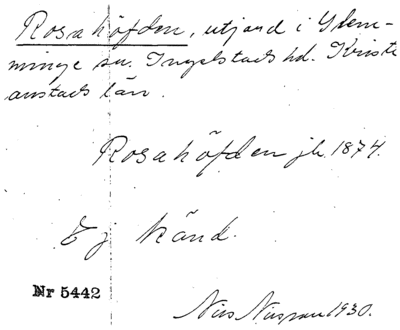 Rosahöfden, utjord i Glem-
minge sn. Ingelstads hd. Kristi-
anstads län.
Rosahöfden jb. 1874.
Ej känd.
Nr 5442
Nils 1930.